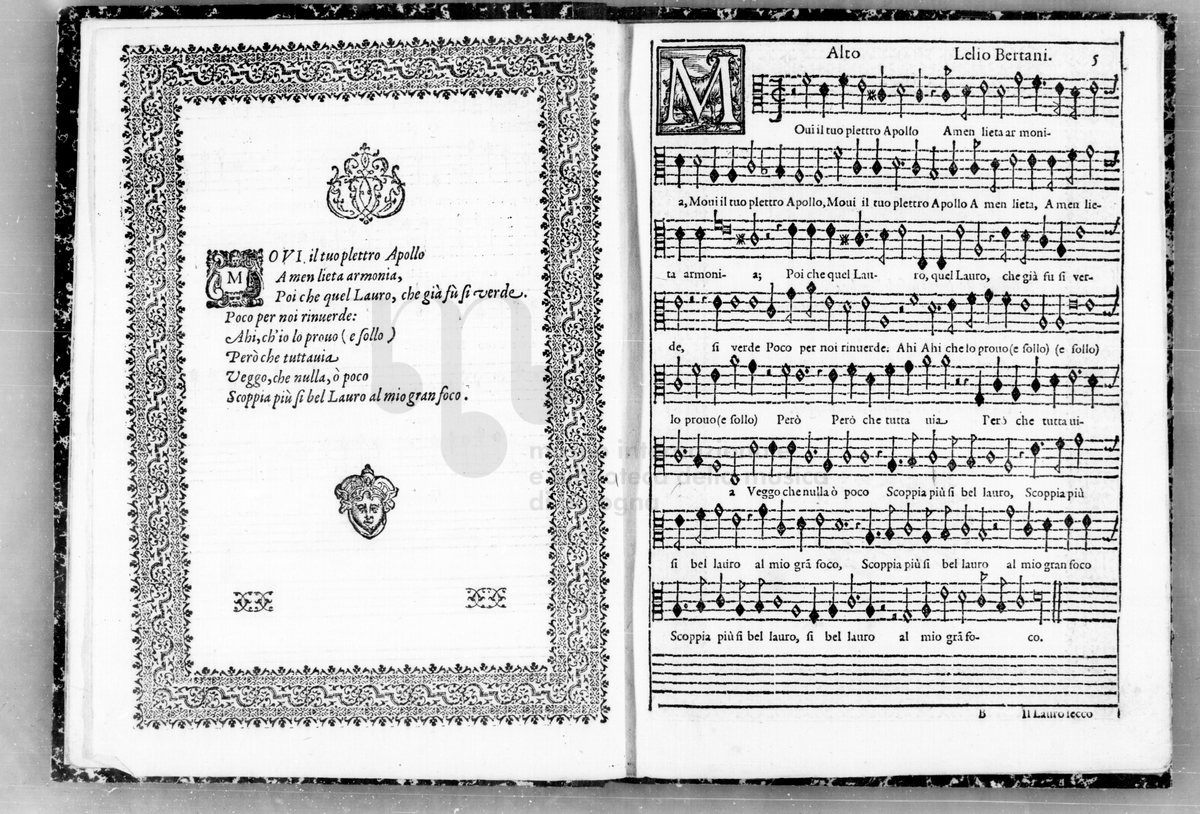 MOVI il tuo plettro Apollo
A men lieta armonia,
Poi che quel Lauro, che già fù si verde.
Poco per noi rinuerde:
Ahi, ch'io lo prouo (e sollo)
Però che tuttauia
Veggo, che nulla, ò poco
Scoppia più si bel Lauro al mio gran foco.
Alto Lelio Bertani. 5
MOui il tuo plettro Apollo A men lieta ar moni-
a, Moui il tuo plettro Apollo, Moui il tuo plettro Apollo A men lieta, A men lie-
ta armoni- a; Poi che quel Lau- ro, quel Lauro, che già fu si ver-
de, si verde Poco per noi rinuerde. Ahi Ahi che lo prouo (e sollo) (e sollo)
lo prouo (e sollo) Però Però che tutta uia Però che tutta ui-
a Veggo che nulla ò poco Scoppia più si bel lauro, Scoppia più
si bel lauro al mio grã foco, Scoppia più si bel lauro al mio gran foco
Scoppia più si bel lauro, si bel lauro al mio grã fo- co.
B Il Lauro secco